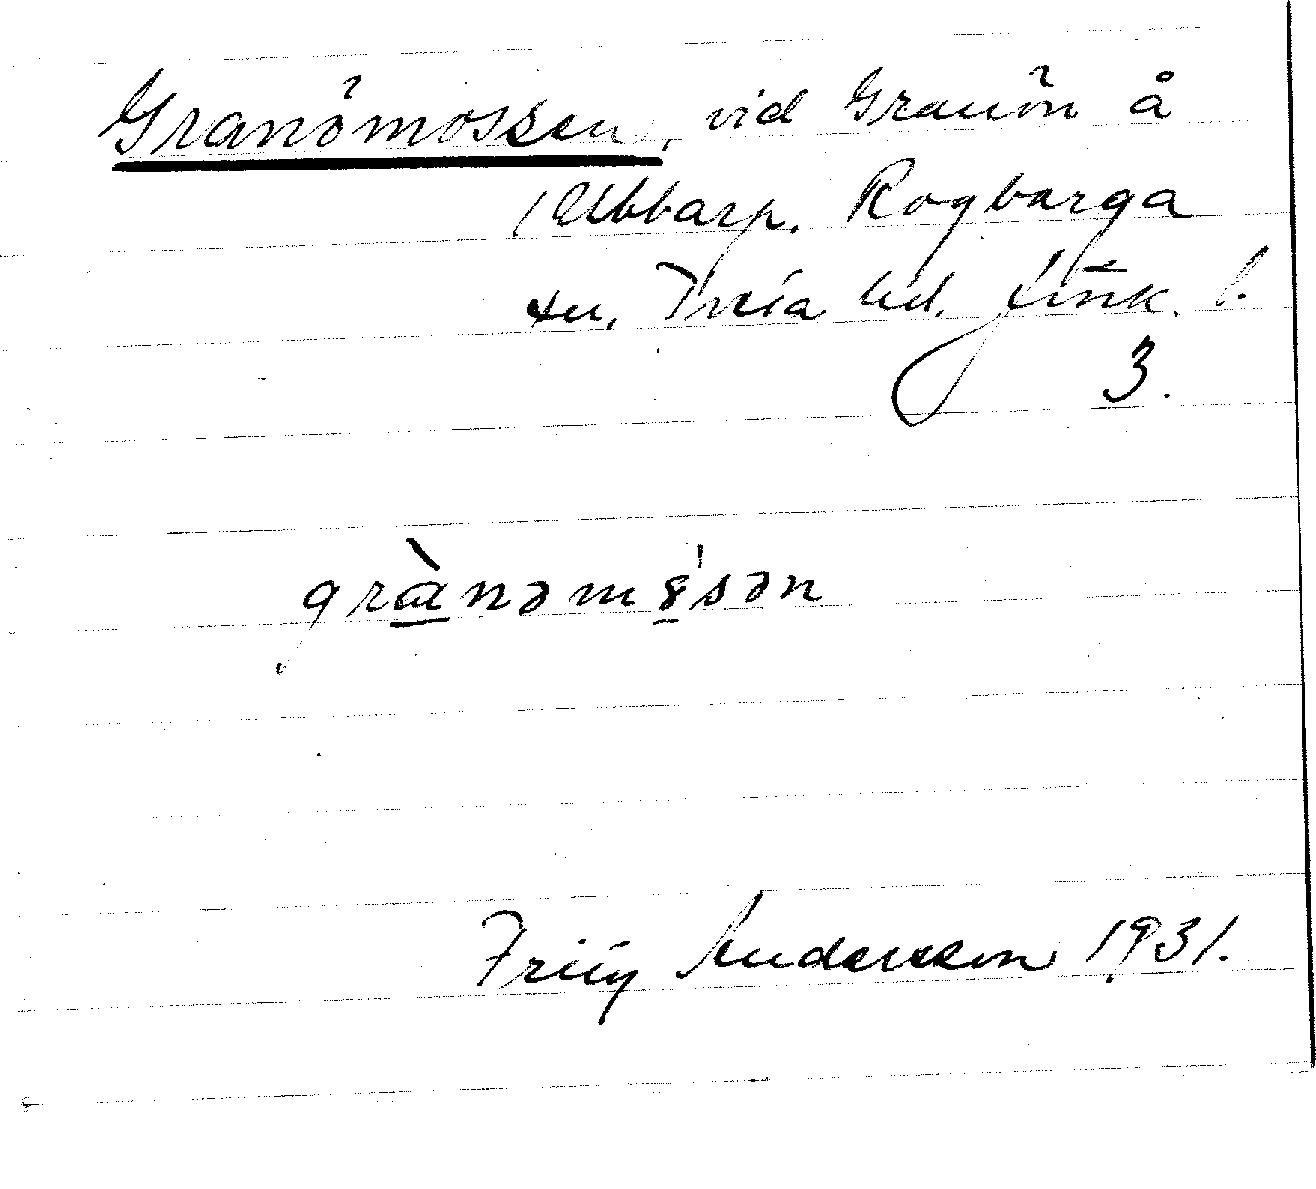 Granömossen, vid Granön å
Ubbarp. Rogberga
sn, Tveta hd. Jönk. l.
3.
grànəmȣ'sən
Andersson 1931.